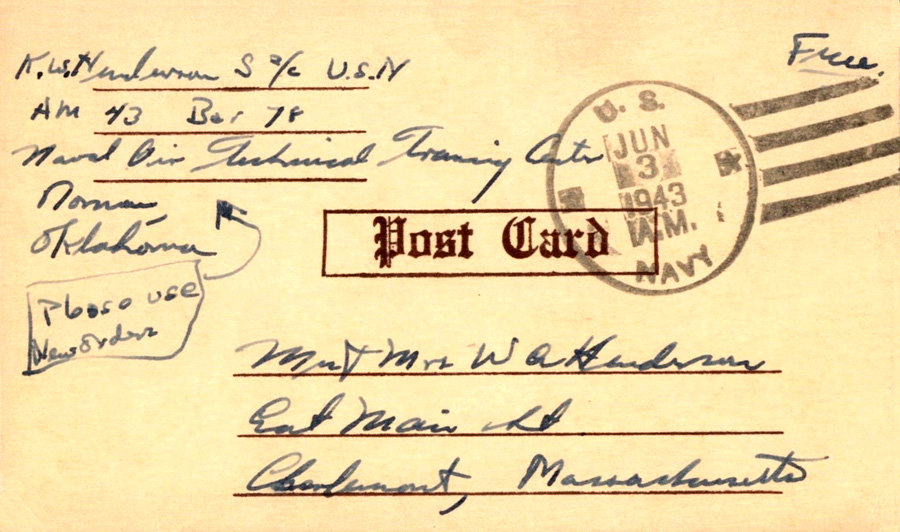 K.W. Henderson S 2/c U.S.N
AM 43 Bar 78
Naval Air Technical Training Center
Norman,
Oklahoma
Please use
New orders
Free.
U. S.
JUN
3
1943
A.M.
NAVY
Post Card
Mr & Mrs W A Henderson
East Main St
Charlemont, Massachusetts